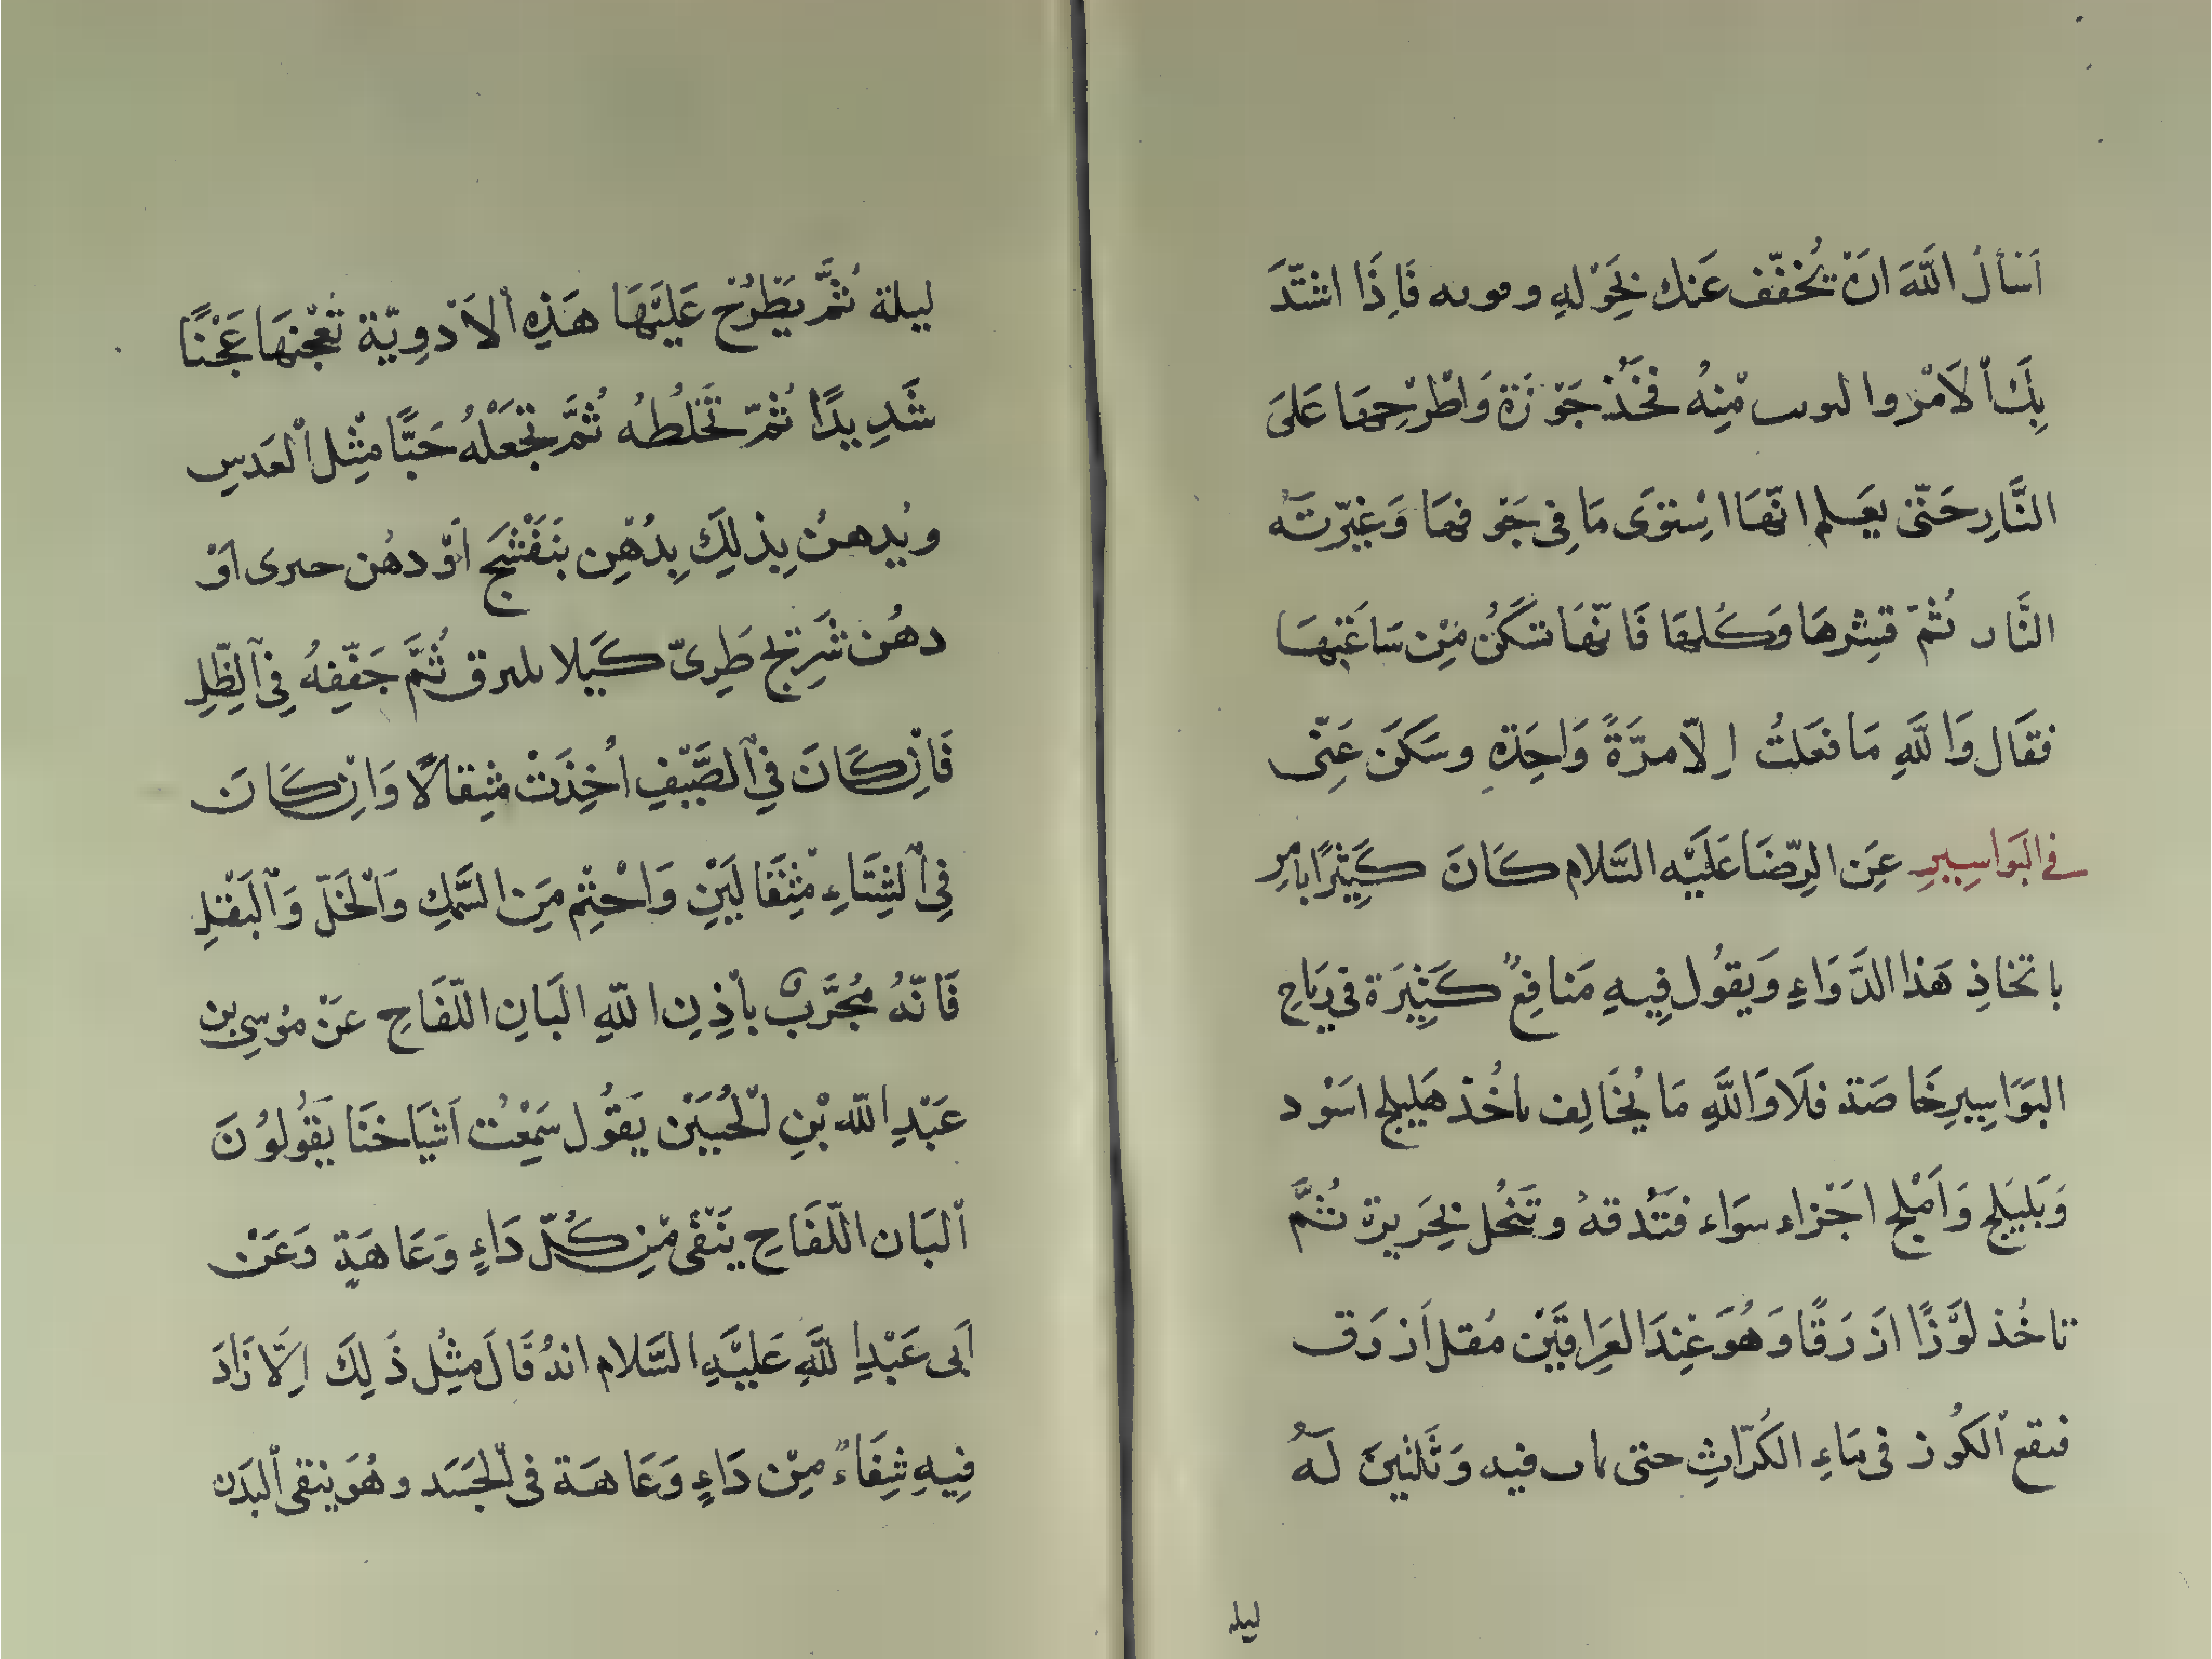 اَسْأَلُ اللّٰهَ اَنْ يُخَفِّف عَنك بِحَوْلِهِ فَاِذَا اشتَدَّ
بِكَ اْلاَمْر منِهُ فَخُذ جَوْزَة وَاطْرَحِهَا عَلىَ
النَّارِ حَتّىٰ يعَلم انّهَا اسْتَوَى مَا فِى جَوْفهَا وَغيّرتَهُ
النَّار ثُمّ قَشِرهَا وَكُلهَا فَانّهَا تسَكُنُ مِنْ سَاعَتِهَا
فقَال وَاللّٰهِ مَا فعَلتُ اِلّا مرَّةً وَاحِدَةِ وسَكَنَ عَنِّى
في البَوَاسِيرِ عَنِ الرِّضَا عَلَيْه السَّلام كَانَ كَثِيرًا يامر
باتخاذِ هَذا الدَّوَاءِ وَيَقُول فِيهِ مَنافِعٌ كَثِيَرة فى رِيَاحِ
البَوَاسِيرِ خَاصَة فَلَا وَاللّٰهِ مَا يُخَالِف تاخُذ هَليِلج اسَوْد
وَبَليَلِج وَاَمْلَج اجَزاء سوَاء فتَدُقهُ وتَنخُل بِحَريرة ثمَّ
تاخُذ لَوْزًا ازَرَقًا وَهُوَ عِنِدَ العِرَاقَيّيْن مُقل اَزرَق
فتقع اْلكوُز فى مَاءِ الكُرّاثِ حتى فيه وَثَلثِينَ لَهُ
ليله
ليلة ثُمَّ يَطْرُحْ عَلَيْهَا هَذِهِ اْلاَدْوِيّة تُعْجنهَا عَجْنًا
شَدِيدًا ثُمّ تَخلُطُه ثُمَّ تجَعَلْهُ حَبًّا مثِل اْلعَدَسِ
ويُدهنُ بِذلِكَ بِدُهْنِ بَنَفْشَج اَوْ دهُن اَوْ
دهُن شَرِيَج طَرِىّ كَيلا ثُمَّ جَفّفِهُ فِي اْلظِّلِ
فَانْ كَانَ فيِ الصَّيْفِ اُخِذَتْ مثِقالًا وَانْ كَانَ
فيِ الشِتَاءِ مثِقَالَيْنِ وَاحْتِم مَنِ السَّمكِ وَاْلخَلّ وَاْلبَقْلِ
فَانّهُ مُجَرَّبٌ باْذِنِ اللّٰهِ البَانِ اللّقَاحِ عَنْ مُوسِى بن
عَبْدِ اللّٰه بْنِ الْحُسَيَن يَقوُل سَمِعْتُ اَشيَاخنَا يَقُولوُنَ
اْلبَان اللّقَاحِ يَنْقى منِ كُلّ دَاءٍ وَعَاهَةٍ وَعَنْ
اَبى عَبْدِ اللّٰهِ عَلَيْهِ السَّلام انهُ قَالَ مثِل ذَلِكَ اِلّا زَادَ
فِيهِ شِفَاءٌ مِن دَاءٍ وَعَاهَة فى الْجَسَد وهُوَ ينقى اْلبَدَن